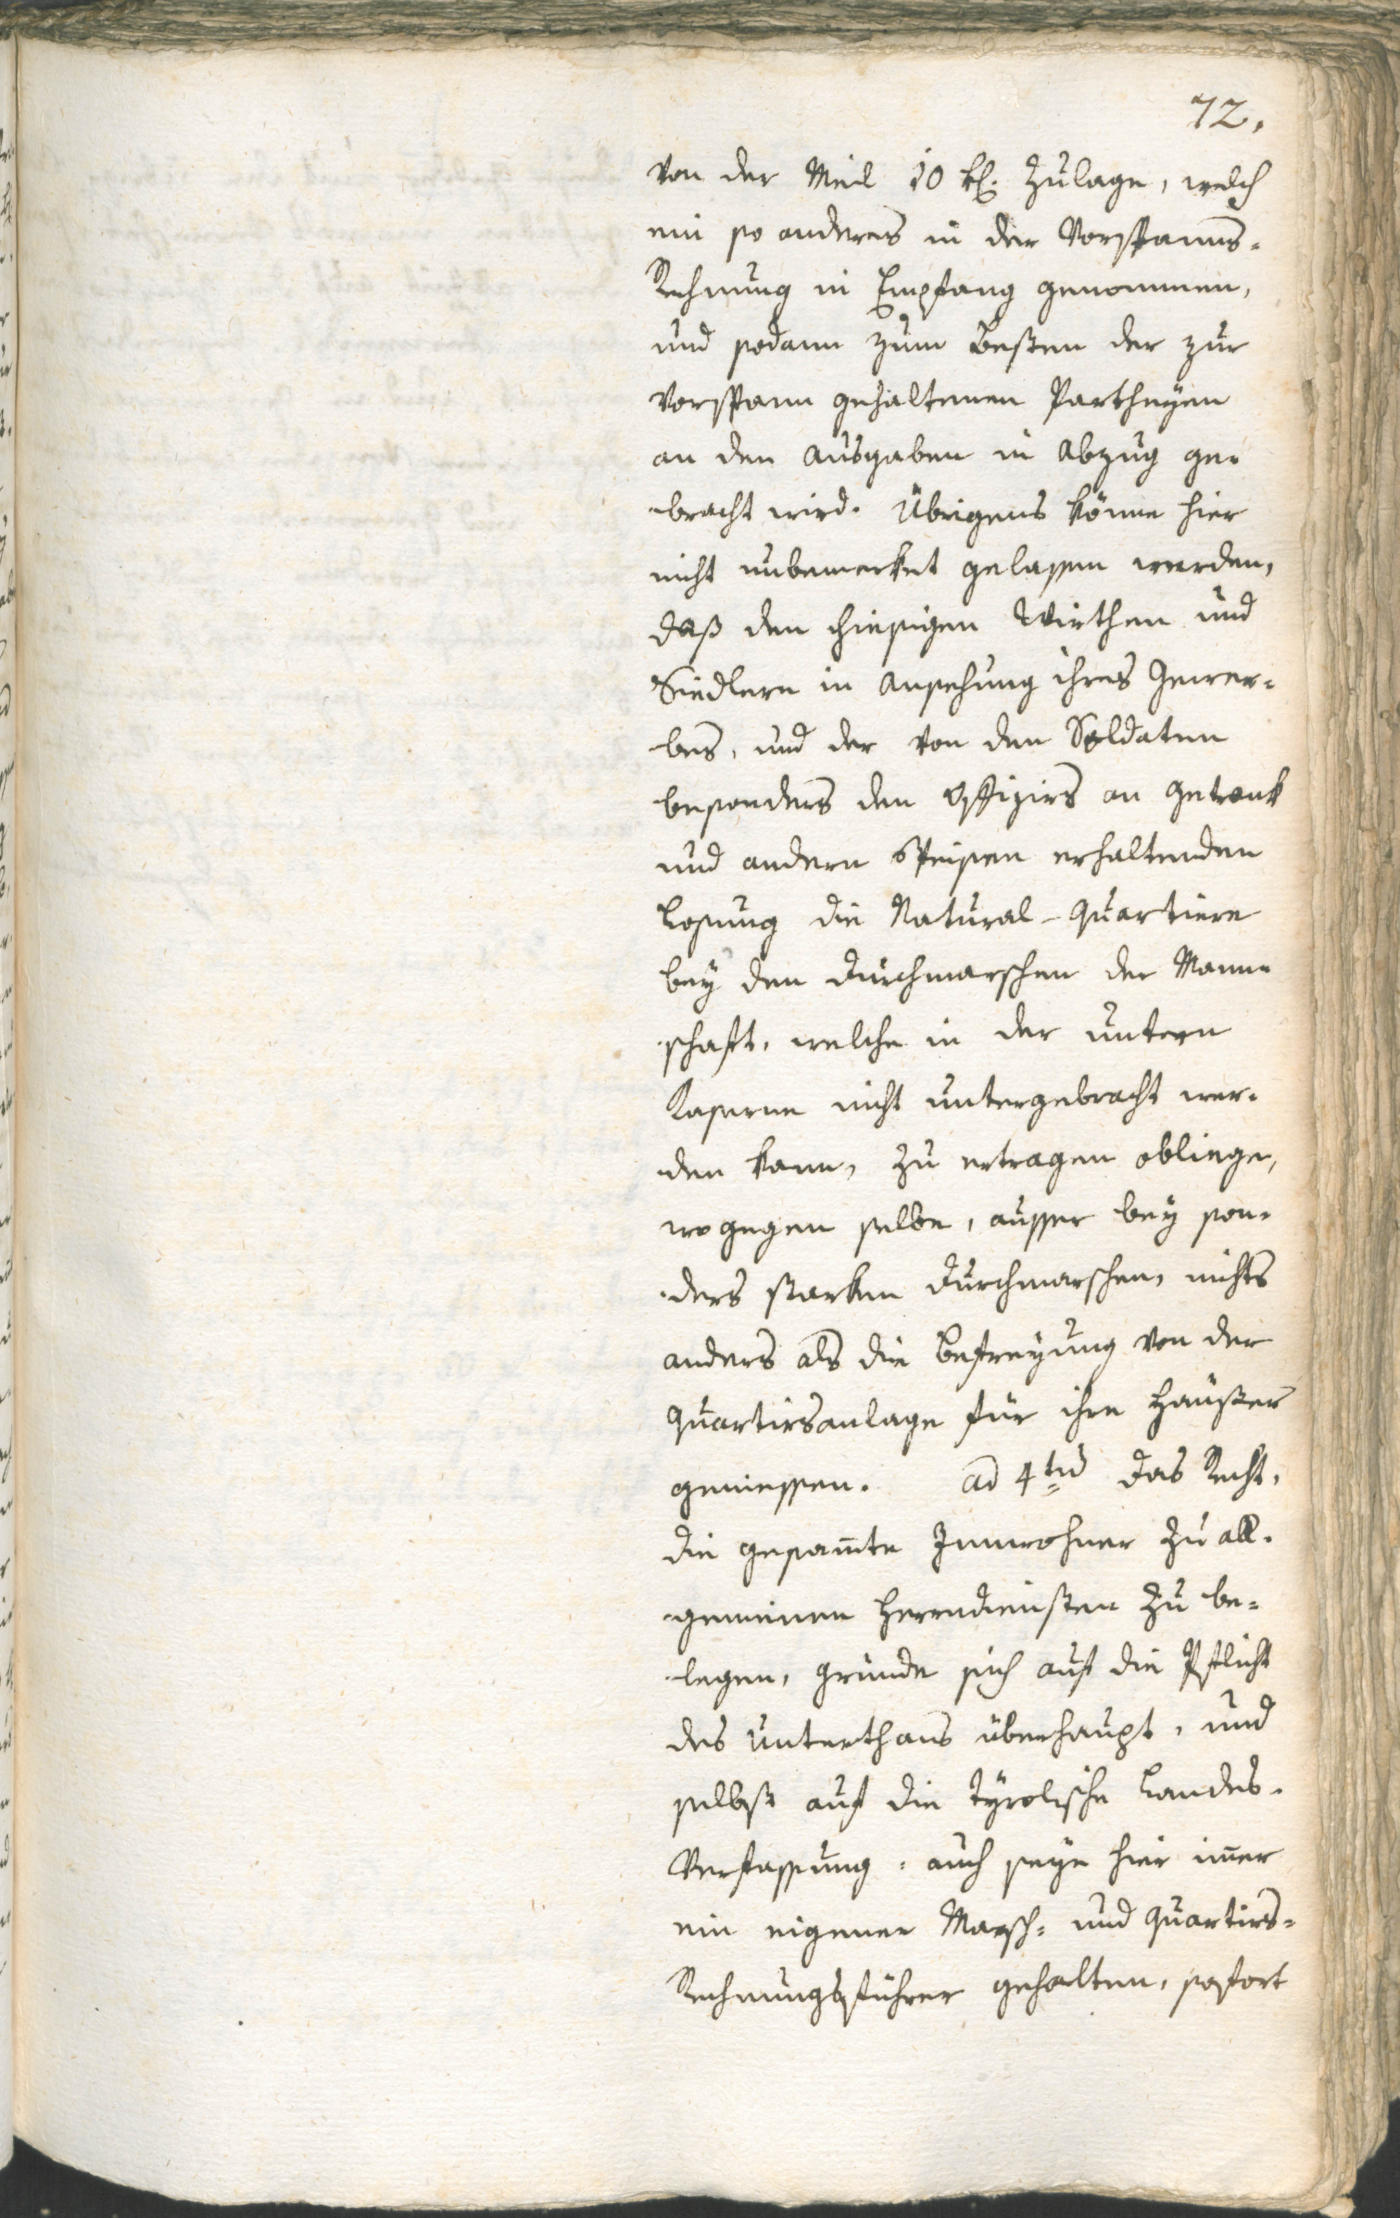 72.
von der Meil 10 kr. Zulage, welch
ein so anderes in der Vorspanns-
Rechnung in Empfang genommen,
und sodann zum Besten der zur
Vorspann gehaltenen Partheyen
an den Ausgaben in Abzug ge-
bracht wird. Übrigens könne hier
nicht unbemerket gelassen werden,
daß den hiesigen Wirthen und
Siedlern in Ansehung ihres Gewer-
bes, und der von den Soldaten
besonders den Offiziers an Getrank
und andern Speisen erhaltenden
Losung die Natural-Quartiere
bey den Durchmarschen der Mann-
schaft, welche in der untern
Kaserne nicht untergebracht wer-
den kann, zu ertragen obliege,
wogegen selbe, ausser bey son-
ders starken Durchmarschen, nichts
anders als die Befreyung von der
Quartirsanlage für ihre Häußer
geniessen. ad 4tũ Das Recht,
die gesam̄te Innwohner zu all-
gemeinen Herrndiensten zu be-
legen, gründe sich auf die Pflicht
des Unterthans überhaupt, und
selbst auf die Tyrolische Landes-
Verfassung: auch seye hier im̄er
ein eigener Marsch- und Quartirs-
Rechnungsführer gehalten, sofort